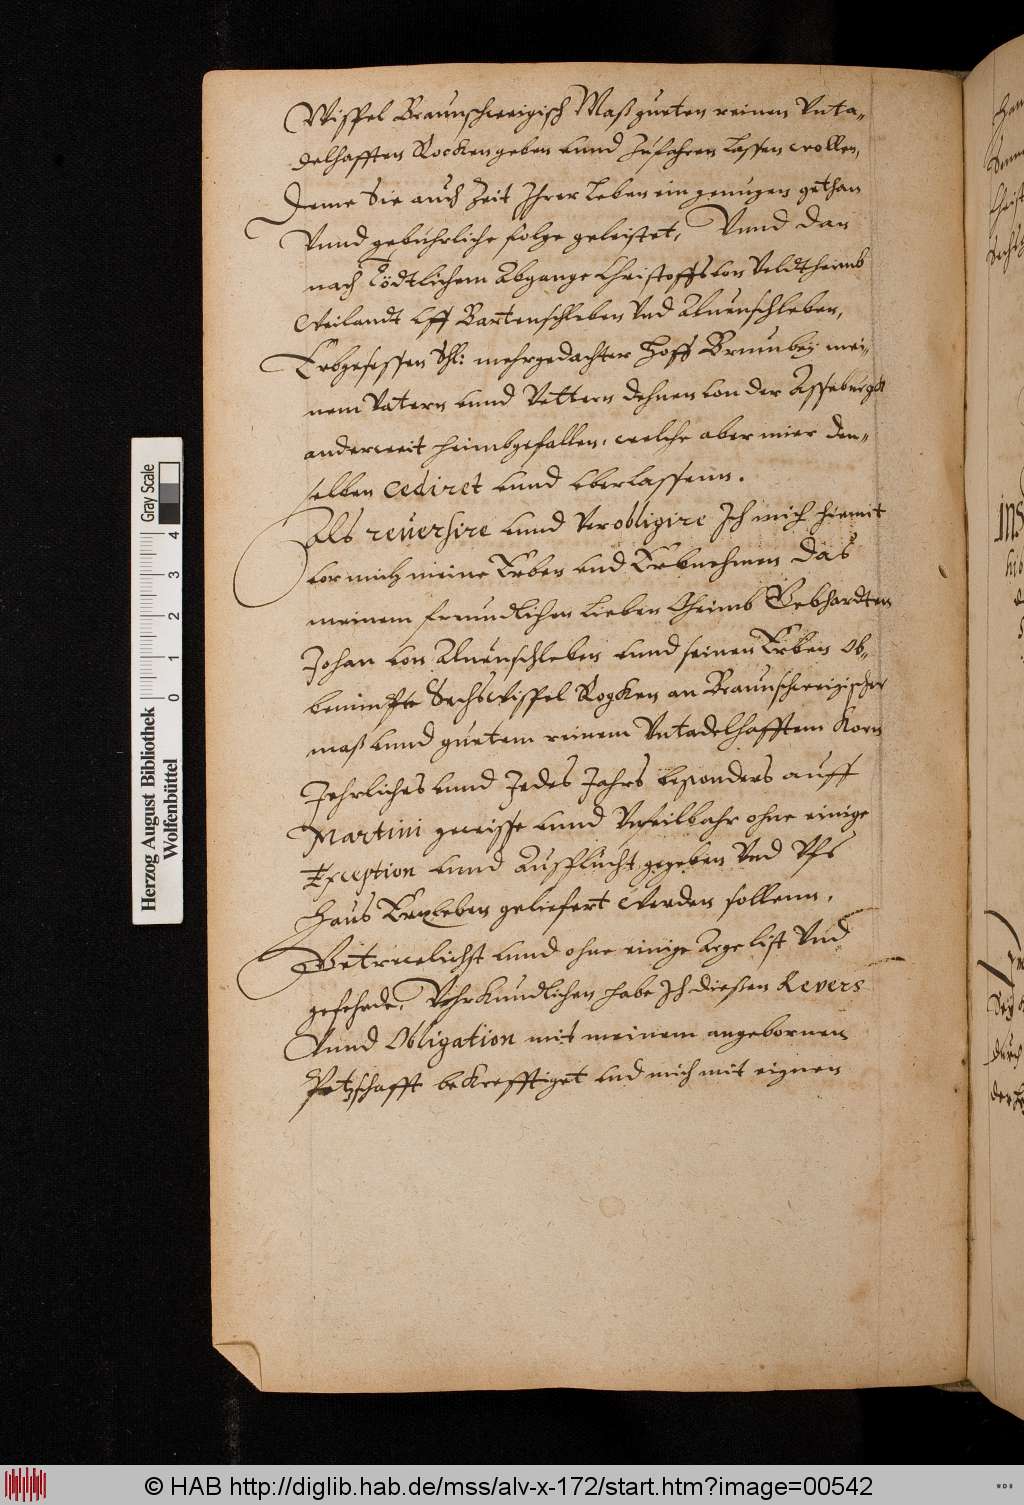 Wispel Braunschweigisch Maß gueten reinen Vnta-
delhafften Rocken geben vnnd zufahren lassen wollen,
Deme Sie auch Zeit Ihrer Leben ein genugen gethan
Vnnd gebuhrliche folge geleistet, Vnnd dan
nach Tödtlichem Abgange Christoffs von Veldtheimb
Weilandt vff Bartenschleben Vnd Aluenschleben,
Erbgesessen Shl: mehrgedachter Hoff Brumbey mei-
nem Vatern vnnd Vettern dehnen von der Asseburgk
anderweit heimbgefallen, welche aber mier den-
selben Cediret vnnd vberlassenn.
Als reuersire vnnd Verobligire Ich mich hiemit
vor mich meine Erben vnd Erbnehmen das
meinem freundlichen lieben Oheimb Gebhardten
Johan von Aluenschleben vnnd seinen Erben Ob-
benimpte Sechs Wispel Rogken an Braunschweigischer
maß vnnd guetem reinem Vntadelhafftem Korn
Jehrliches vnnd Jedes Jahrs besonders auff
Martini gewisse vnnd Vnfeilbahr ohne einige
Exception vnnd Ausflucht gegeben Vnd Vfs
Haus Erxleben geliefert Werden sollenn,
Getrewlichst vnnd ohne einige Argelist Vnd
gefehrde, Vhrkundlichen habe Ich dießen Revers
Vnnd Obligation mit meinem angebornen
Petzschafft bekrefftiget vnd mich mit eignen
Herzog August Bibliothek
Wolfenbüttel
Gray Scale
0 1 2 3 4
© HAB http://diglib.hab.de/mss/alv-x-172/start.htm?image=00542